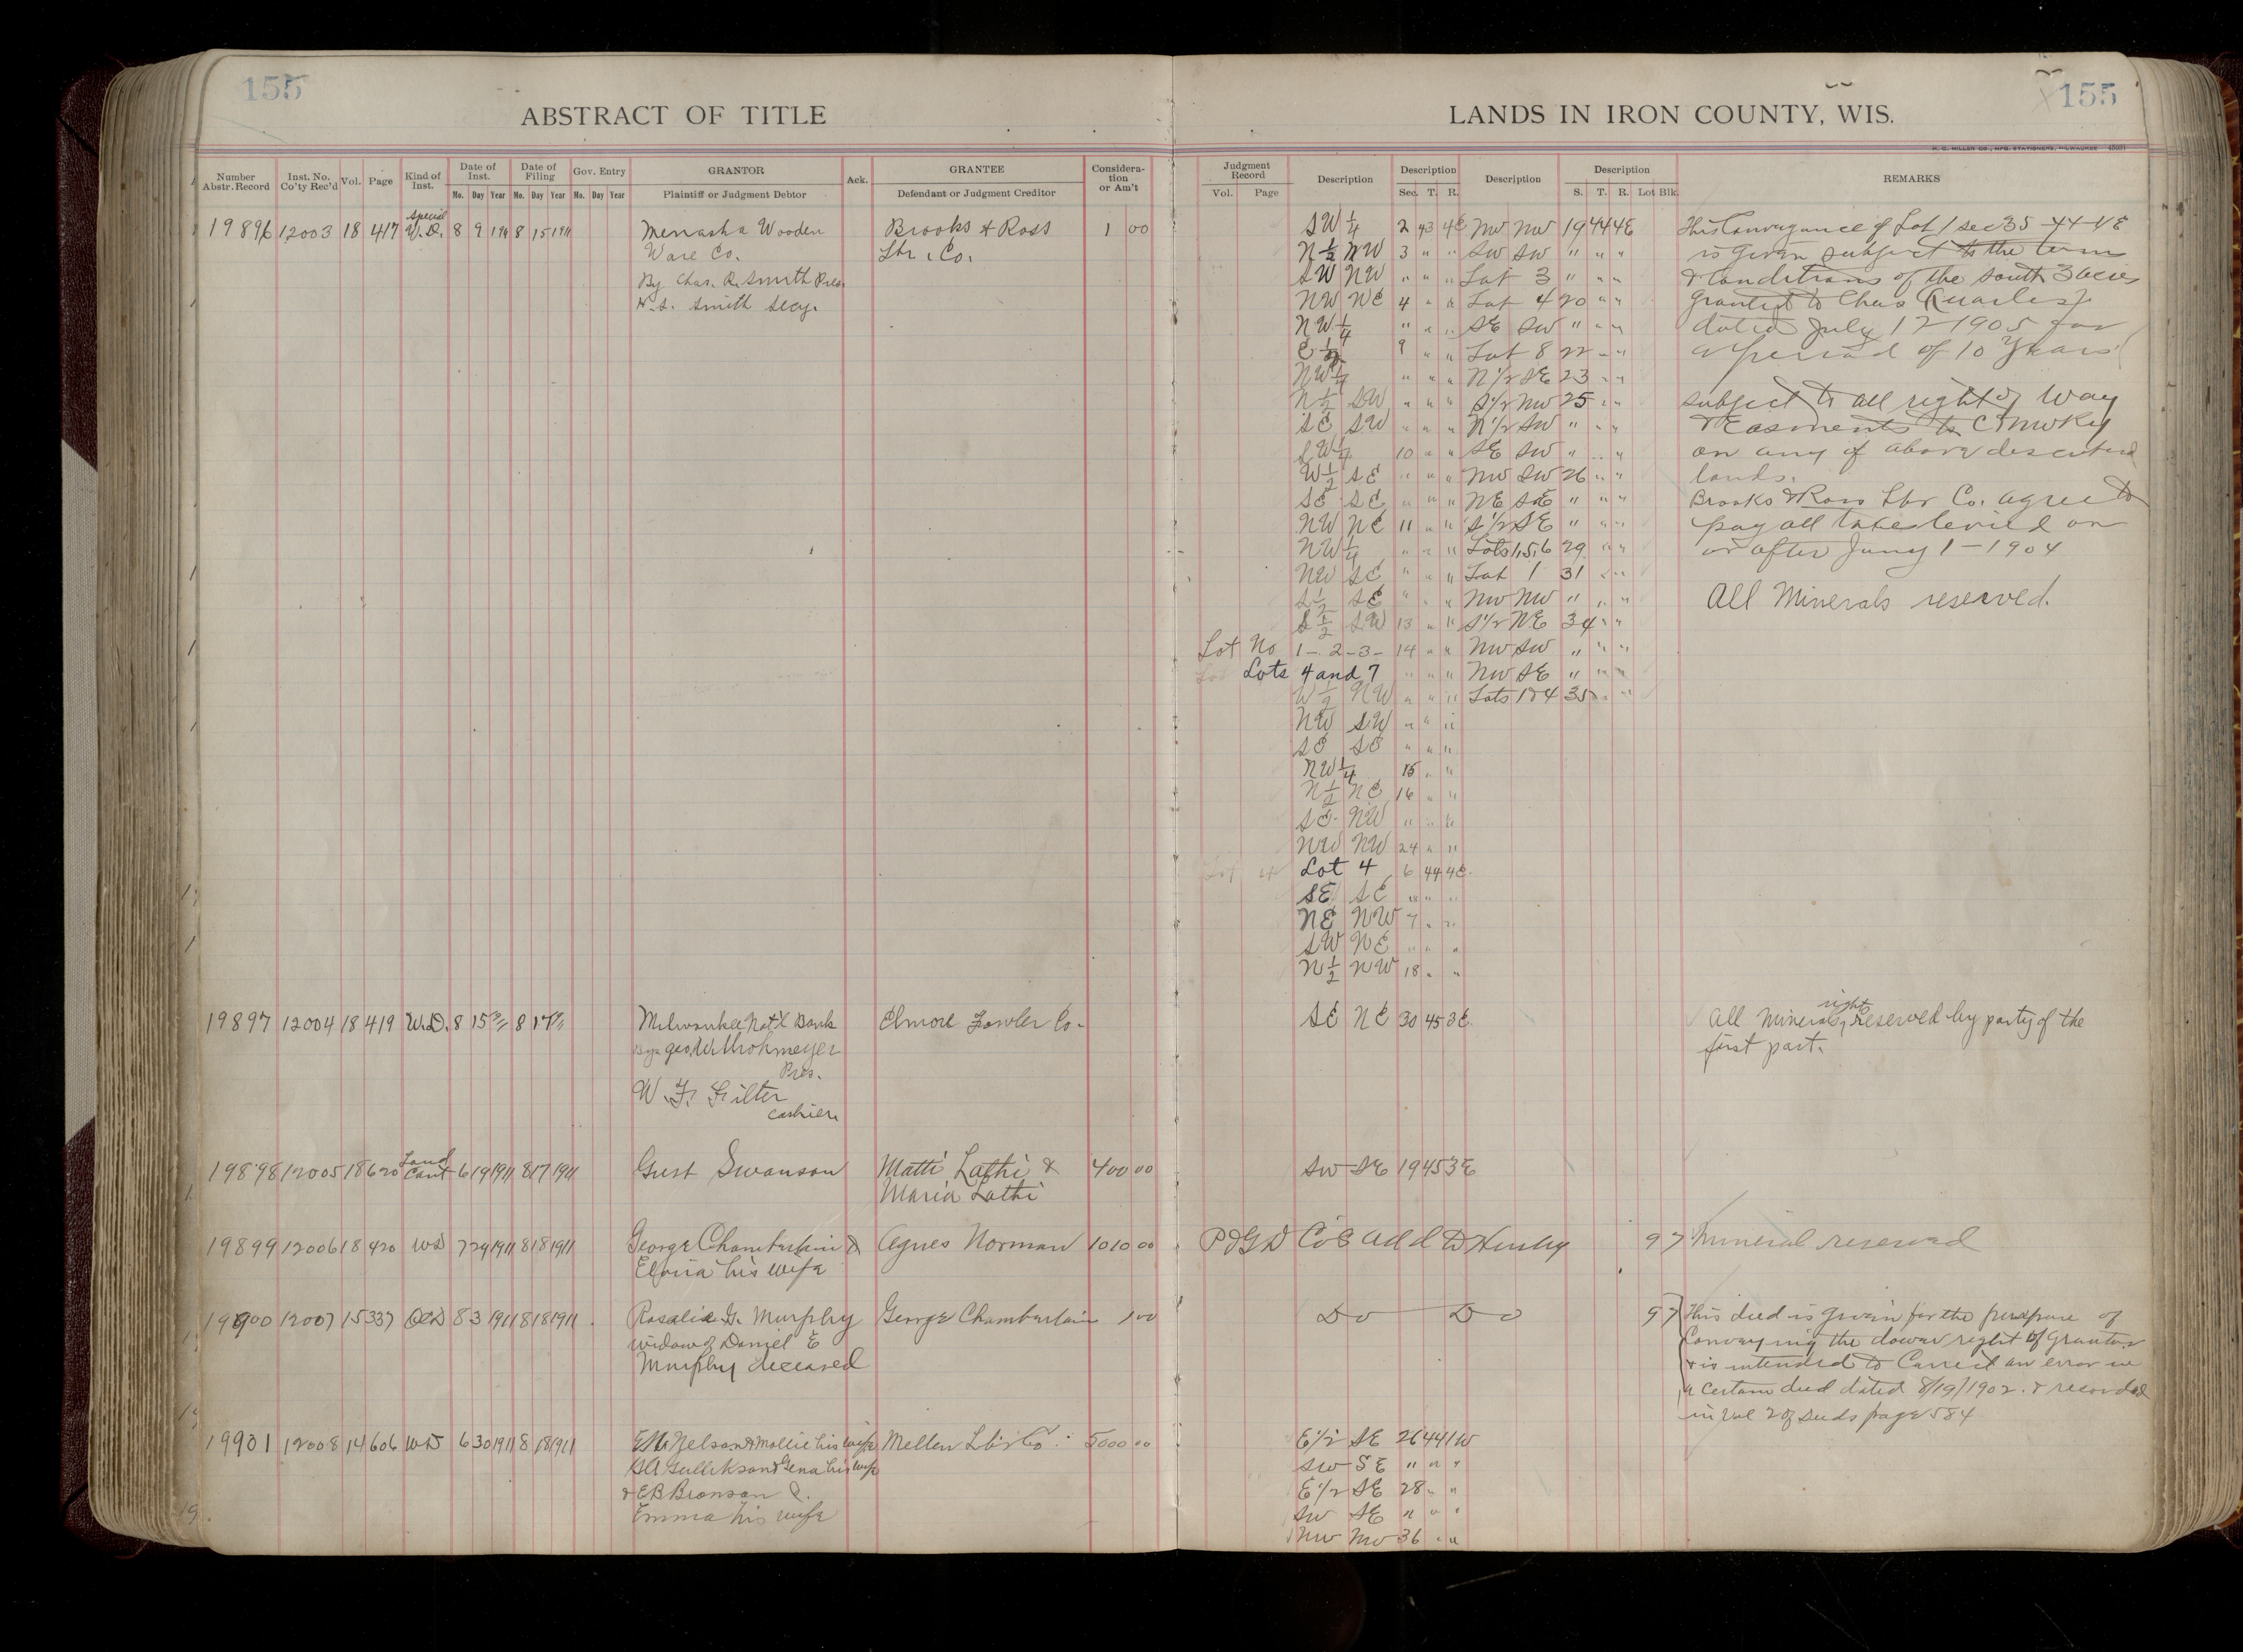 155
ABSTRACT OF TITLE
Number Abstr. Record Inst. No. Co'ty Rec'd Vol. Page Kind of Inst. Date of Inst. Date of Filing Gov. Entry GRANTOR Ack. GRANTEE Considera-tion or Am't
Mo. Day Year Mo. Day Year Mo. Day Year Plaintiff or Judgment Debtor Defendant or Judgment Creditor
19896 12003 18 417 Special W.D. 8 9 1911 8 15 1911 Menasha Wooden Brooks & Ross 1 00
Ware Co. Lbr. Co.
By Chas. R. Smith Pres.
W.S. Smith Secy.
19897 12004 18 419 W.D. 8 15 11 8 17 11 Milwaukee Nat'l Bank Elmore Fowler Co.
By Geo. W.
Pres.
W. F. Filter
Cashier
19898 12005 18 620 Land Cont 6 19 1911 8 17 1911 Gust Swanson Matti Lathi & 400 00
Maria Lathi
19899 12006 18 420 WD 7 29 1911 8 18 1911 George Chamberlain & Agnes Norman 1010 00
his wife
19900 12007 15 337 QCD 8 3 1911 8 18 1911 Rosalie G. Murphy George Chamberlain 1 00
widow of Daniel E
Murphy deceased
19901 12008 14 606 WD 6 30 1911 8 18 1911 Nelson & Mollie his wife Mellen Lbr Co. 5000 00
Gullikson & Gena his wife
& EB Bronson &
Emma his wife
155
LANDS IN IRON COUNTY, WIS.
H. C. MILLER CO., MFG. STATIONERS, MILWAUKEE
Judgment Record Description Description Description Description REMARKS
Vol. Page Sec. T. R. S. T. R. Lot Blk.
SW 1/4 2 43 4E NW NW 19 44 4E This Conveyance of Lot 1 sec 35-44-4E
N 1/2 NW 3 " " SW SW " " " is given subject to the term
SW NW " " " Lot 3 " " " & Conditions of the South 3 acres
NW NE 4 " " Lot 4 20 " " granted to Chas Quarles Jr.
NW 1/4 " " " SE SW " " " dated July 12 1905 for
E 1/2 9 " " Lot 8 22 " " a period of 10 Years
NW 1/4 " " " N 1/2 SE 23 " "
N 1/2 SW " " " S 1/2 NW 25 " " Subject to all right of Way
SE SW " " " N 1/2 SW " " " & Easments to C & NW Ry
SW 1/4 10 " " SE SW " " " on any of above described
W 1/2 SE " " " NW SW 26 " " lands.
SE SE " " " NE SE " " " Brooks & Ross Lbr Co. agree to
NW NE 11 " " S 1/2 SE " " " pay all taxes levied on
NW 1/4 " " " Lots 1,5,6 29 " " or after Jany 1-1904
NW SE " " " Lot 1 31 " "
S 1/2 SE " " " NW NW " " " All Minerals reserved.
S 1/2 SW 13 " " S 1/2 NE 34 " "
Lot No 1-2-3- 14 " " NW SW " " "
Lots 4 and 7 " " " NW SE " " "
W 1/2 NW " " " Lots 1 & 4 35 " "
NW SW " " "
SE SE " " "
NW 1/4 15 " "
N 1/2 NE 16 " "
SE NW " " "
NW NW 24 " "
Lot 4 6 44 4E.
SE SE " " "
NE NW 7 " "
SW NE " " "
N 1/2 NW 18 " "
SE NE 30 45 3E. All Mineral rights reserved by party of the
first part.
SW SE 19 45 3E
P & G D Co's Add to Hurley 9 7 Mineral reserved
Do Do 9 7 This deed is given for the purpose of
Conveying the dower right of Grantor
& is intended to Correct an error in
a certain deed dated 8/19/1902 & recorded
in Vol 2 of Deeds page 584
E 1/2 SE 26 44 1W
SW SE " " "
E 1/2 SE 28 " "
SW SE " " "
NW NW 36 " "